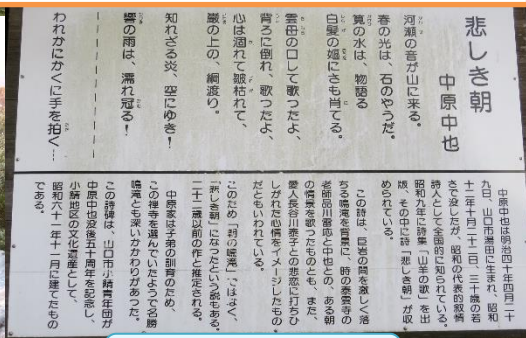 悲しき朝
中原中也
河瀬の音が山に来る、
春の光は、石のやうだ。
筧の水は、物語る
白髪の嫗にさも肖てる。
雲母の口して歌つたよ、
背ろに倒れ、歌つたよ、
心は涸れて皺枯れて、
巌の上の、綱渡り。
知れざる炎、空にゆき！
響の雨は、濡れ冠る！
われかにかくに手を拍く…
中原中也は明治四十年四月二十
九日、山口市湯田に生まれ、昭和
十二年十月二十二日、三十歳の若
さで没したが、昭和の代表的叙情
詩人として全国的に知られている。
昭和九年に詩集「山羊の歌」を出
版、その中に詩「悲しき朝」が収
められている。
この詩は、巨岩の間を激しく落
ちる鳴滝を背景に、時の泰雲寺の
老師品川雷応と中也との、ある朝
の情景を歌ったものとも、また、
愛人長谷川泰子との悲恋に打ちひ
しがれた心情をイメージしたもの
だともいわれている。
このため「朝の鳴滝」ではなく、
「悲しき朝」になったという説もある。
二十二歳以前の作と推定される。
中原家は子弟の訓育のため、
この禅寺を選んでいたようで名勝
鳴滝とも深いかかわりがあった。
この詩碑は、山口市小鯖青年団が
中原中也没後五十周年を記念し、
小鯖地区の文化遺産として、
昭和六十一年十一月に建てたもの
である。